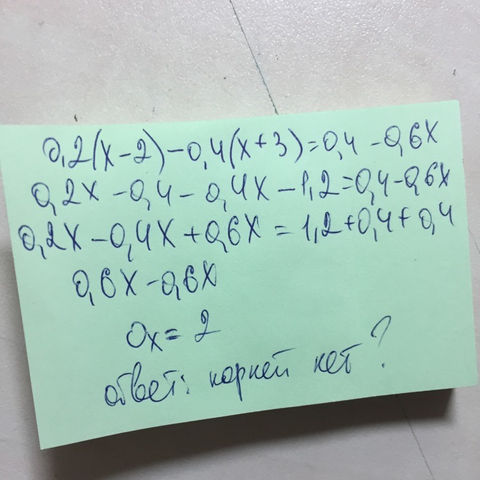 0,2(x-2)-0,4(x+3)=0,4-0,6x
0,2x-0,4-0,4x-1,2=0,4-0,6x
0,2x-0,4x+0,6x=1,2+0,4+0,4
0,6x-0,6x
0x=2
ответ: корней нет?